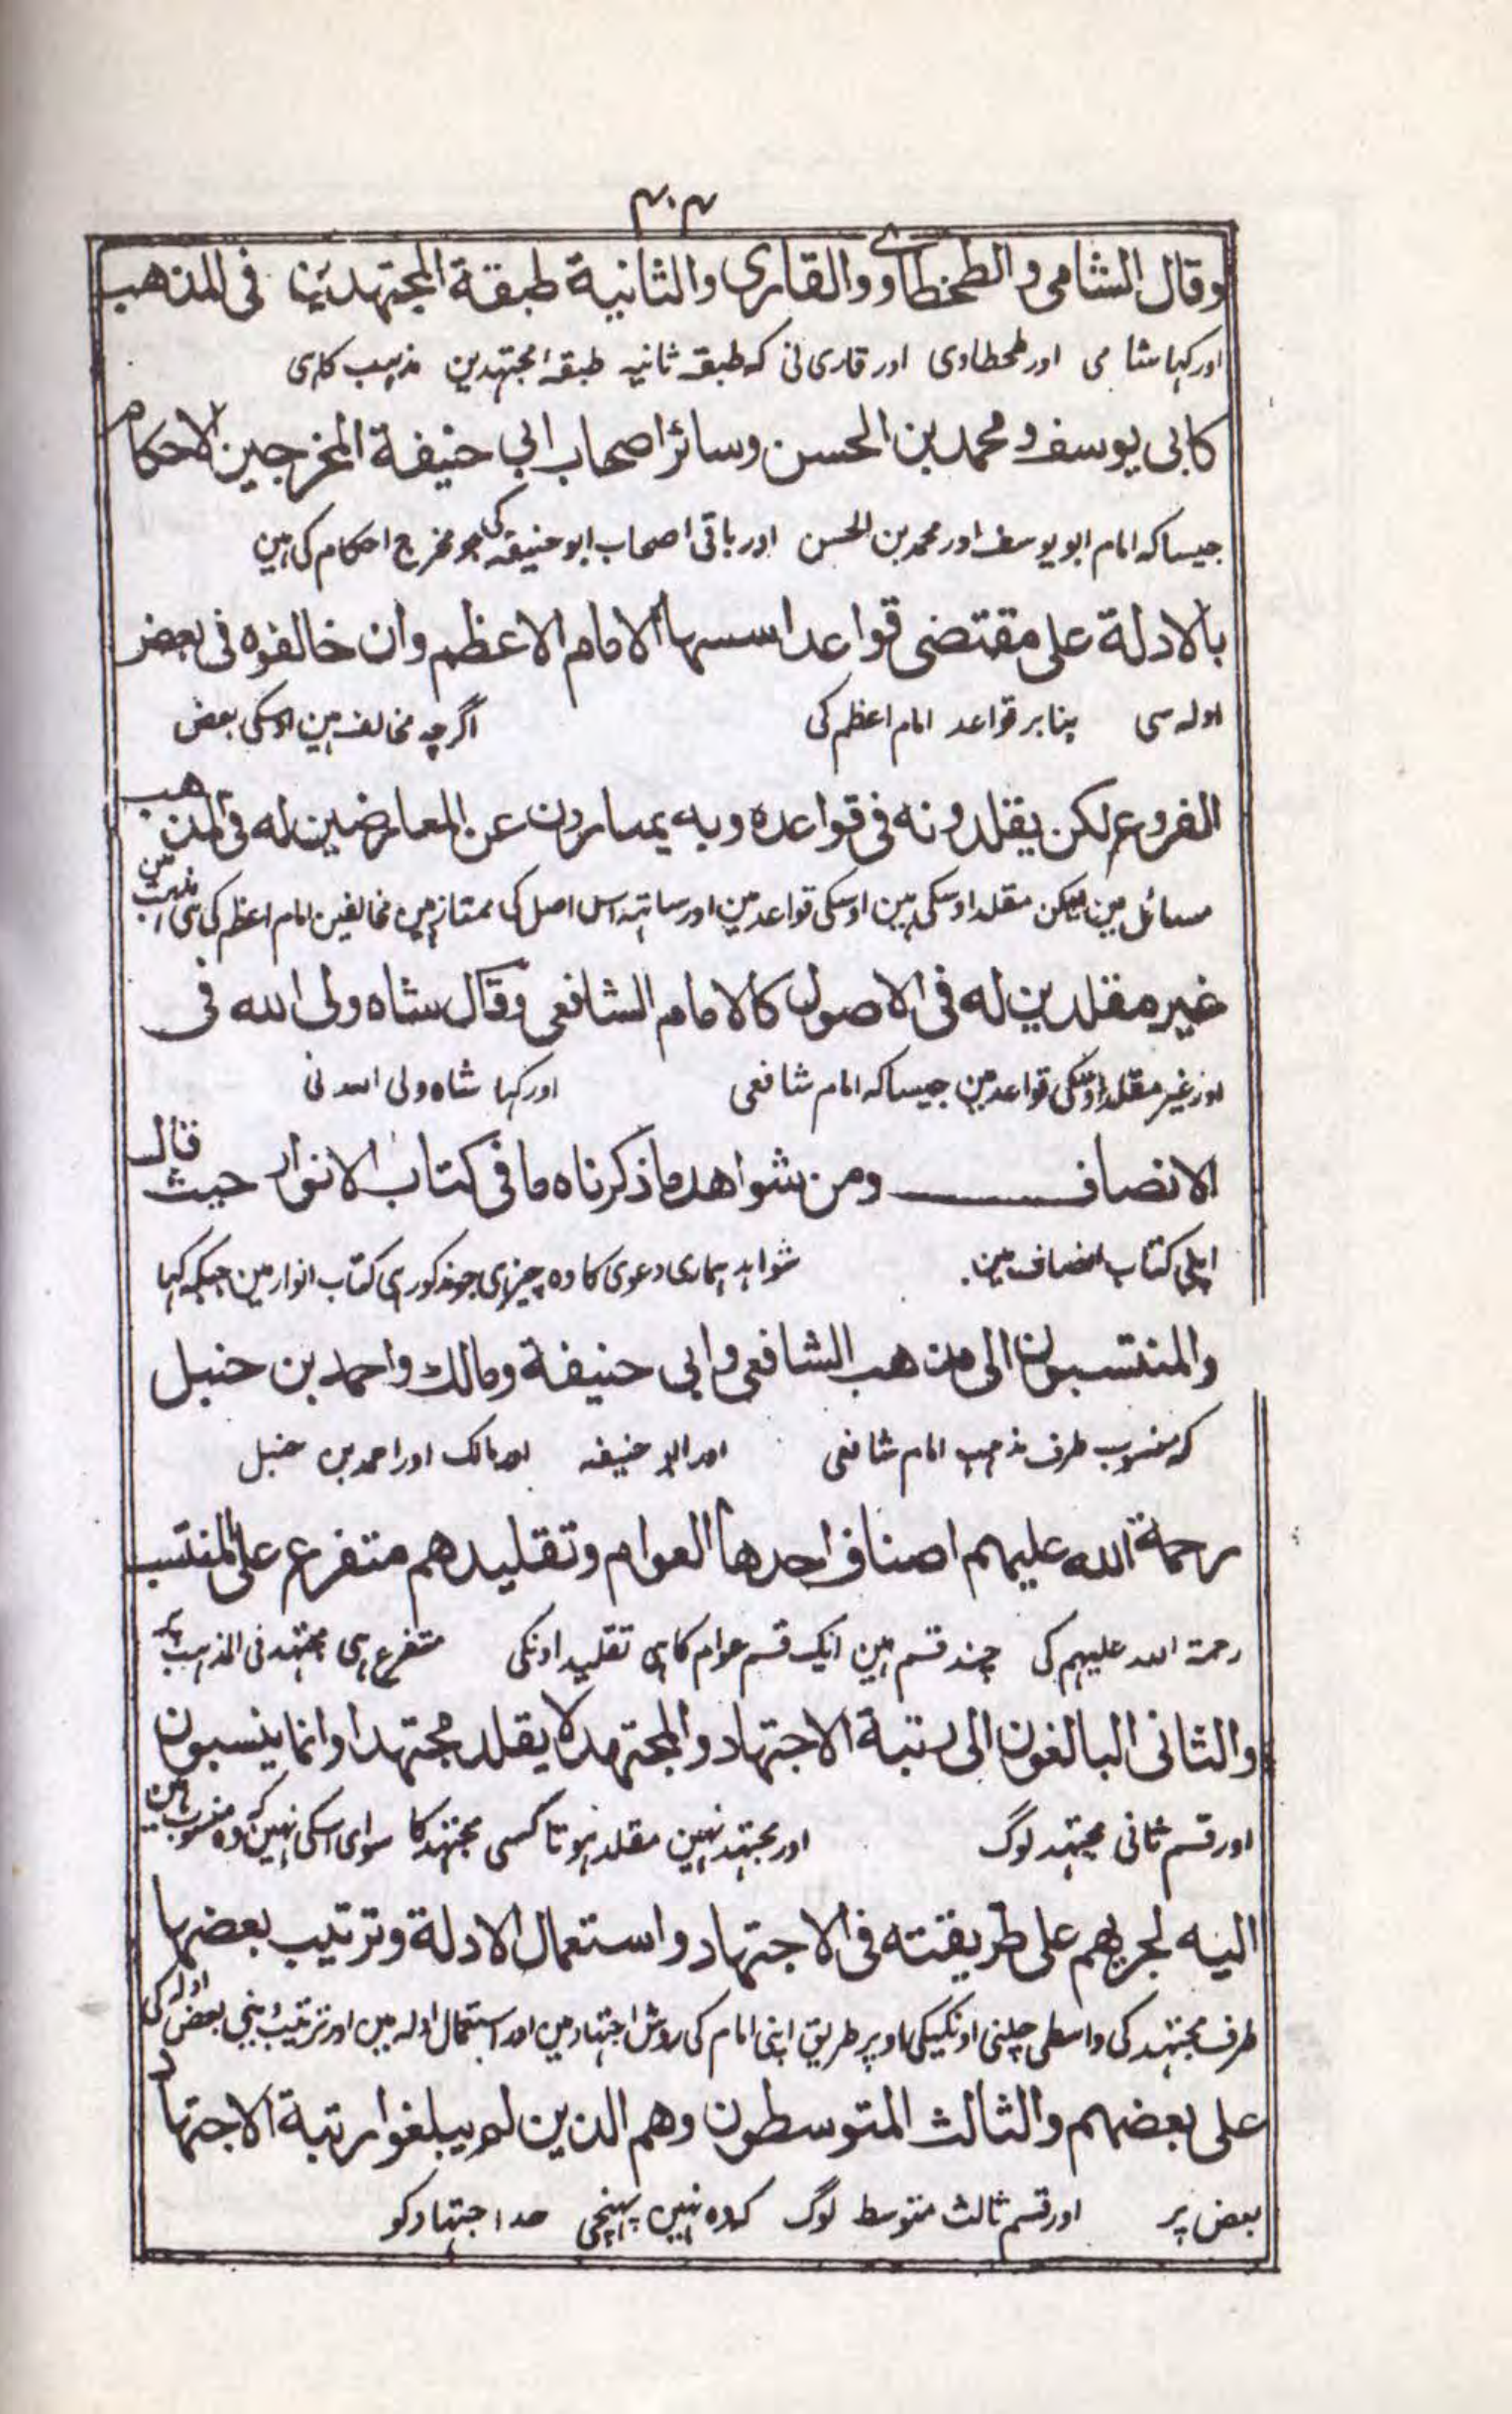 ۴۰۴
وقال الشامی والطحطاوے والقاری والثانیة طبقة المجتهدین فی المذهب
اور کہا شامی اور طحطاوی اور قاری نی کہ طبقہ ثانیہ طبقہ مجتہدین مذہب کا ہی
کابی یوسف ومحمد بن الحسن وسائر اصحاب ابی حنیفة المخرجین الاحکام
جیسا کہ امام ابو یوسف اور محمد بن الحسن اور باقی اصحاب ابو حنیفہ کی جو مخرج احکام کی ہین
بالادلة علی مقتضی قواعد اسسها الامام الاعظم وان خالفوه فی بعض
ادلہ سی بنابر قواعد امام اعظم کی اگرچہ مخالف ہین اوسکی بعض
الفروع لکن یقلدونه فی قواعده وبه یمتازون عن المعارضین له فی المذهب
مسائل مین لیکن مقلد اوسکی ہین اوسکی قواعد مین اور ساتہہ اسی اصل کی ممتاز ہین مخالفین امام اعظم کی سی مذہب مین
غیر مقلدین له فی الاصول کالامام الشافعی وقال شاه ولی الله فی
اور غیر مقلد اوسکی قواعد مین جیسا کہ امام شافعی اور کہا شاہ ولی اللہ نی
الانصاف ومن شواهد ما ذکرناه ما فی کتاب الانوار حیث قال
اپنی کتاب انصاف مین شواہد ہماری دعوی کا وہ چیز ہی جو مذکور ہی کتاب انوار مین جبکہ کہا
والمنتسبون الی مذهب الشافعی وابی حنیفة ومالك واحمد بن حنبل
کہ منسوب طرف مذہب امام شافعی اور ابو حنیفہ اور مالک اور احمد بن حنبل
رحمة الله علیهم اصناف احدها العوام وتقلیدهم متفرع علی المنتسب
رحمۃ اللہ علیہم کی چند قسم ہین ایک قسم عوام کا ہی تقلید اونکی متفرع ہی مجتہد فی المذہب پر
والثانی البالغون الی رتبة الاجتهاد والمجتهد لا یقلد مجتهدا وانما ینسبون
اور قسم ثانی مجتہد لوگ اور مجتہد نہین مقلد ہوتا کسی مجتہد کا سوای اسکی نہین کہ وہ منسوب ہین
الیه لجریهم علی طریقته فی الاجتهاد واستعمال الادلة وترتیب بعضها
طرف مجتہد کی واسطی چلنی اونکیکی اوپر طریق اپنی امام کی روش اجتہاد مین اور استعمال ادلہ مین اور ترتیب بعض ادلہ کی
علی بعضهم والثالث المتوسطون وهم الذین لم یبلغوا رتبة الاجتهاد
بعض پر اور قسم ثالث متوسط لوگ کہ وہ نہین پہنچی حد اجتہاد کو